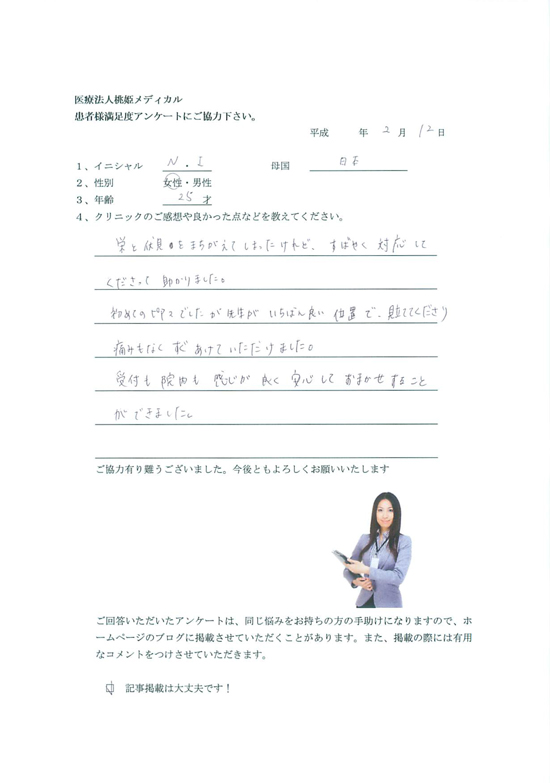 医療法人桃姫メディカル
患者様満足度アンケートにご協力下さい。
平成 年 2 月 12 日
1、イニシャル N . I 母国 日本
2、性別 女性・男性
3、年齢 25 才
4、クリニックのご感想や良かった点などを教えてください。
栄と伏見をまちがえてしまったけれど、すばやく対応して
くださって助かりました。
初めてのピアスでしたが先生がいちばん良い位置で、見立ててくださり
痛みもなくすぐあけていただけました。
受付も院内も感じが良く安心しておまかせすること
ができました。
ご協力有り難うございました。今後ともよろしくお願いいたします
ご回答いただいたアンケートは、同じ悩みをお持ちの方の手助けになりますので、ホ
ームページのブログに掲載させていただくことがあります。また、掲載の際には有用
なコメントをつけさせていただきます。
記事掲載は大丈夫です！